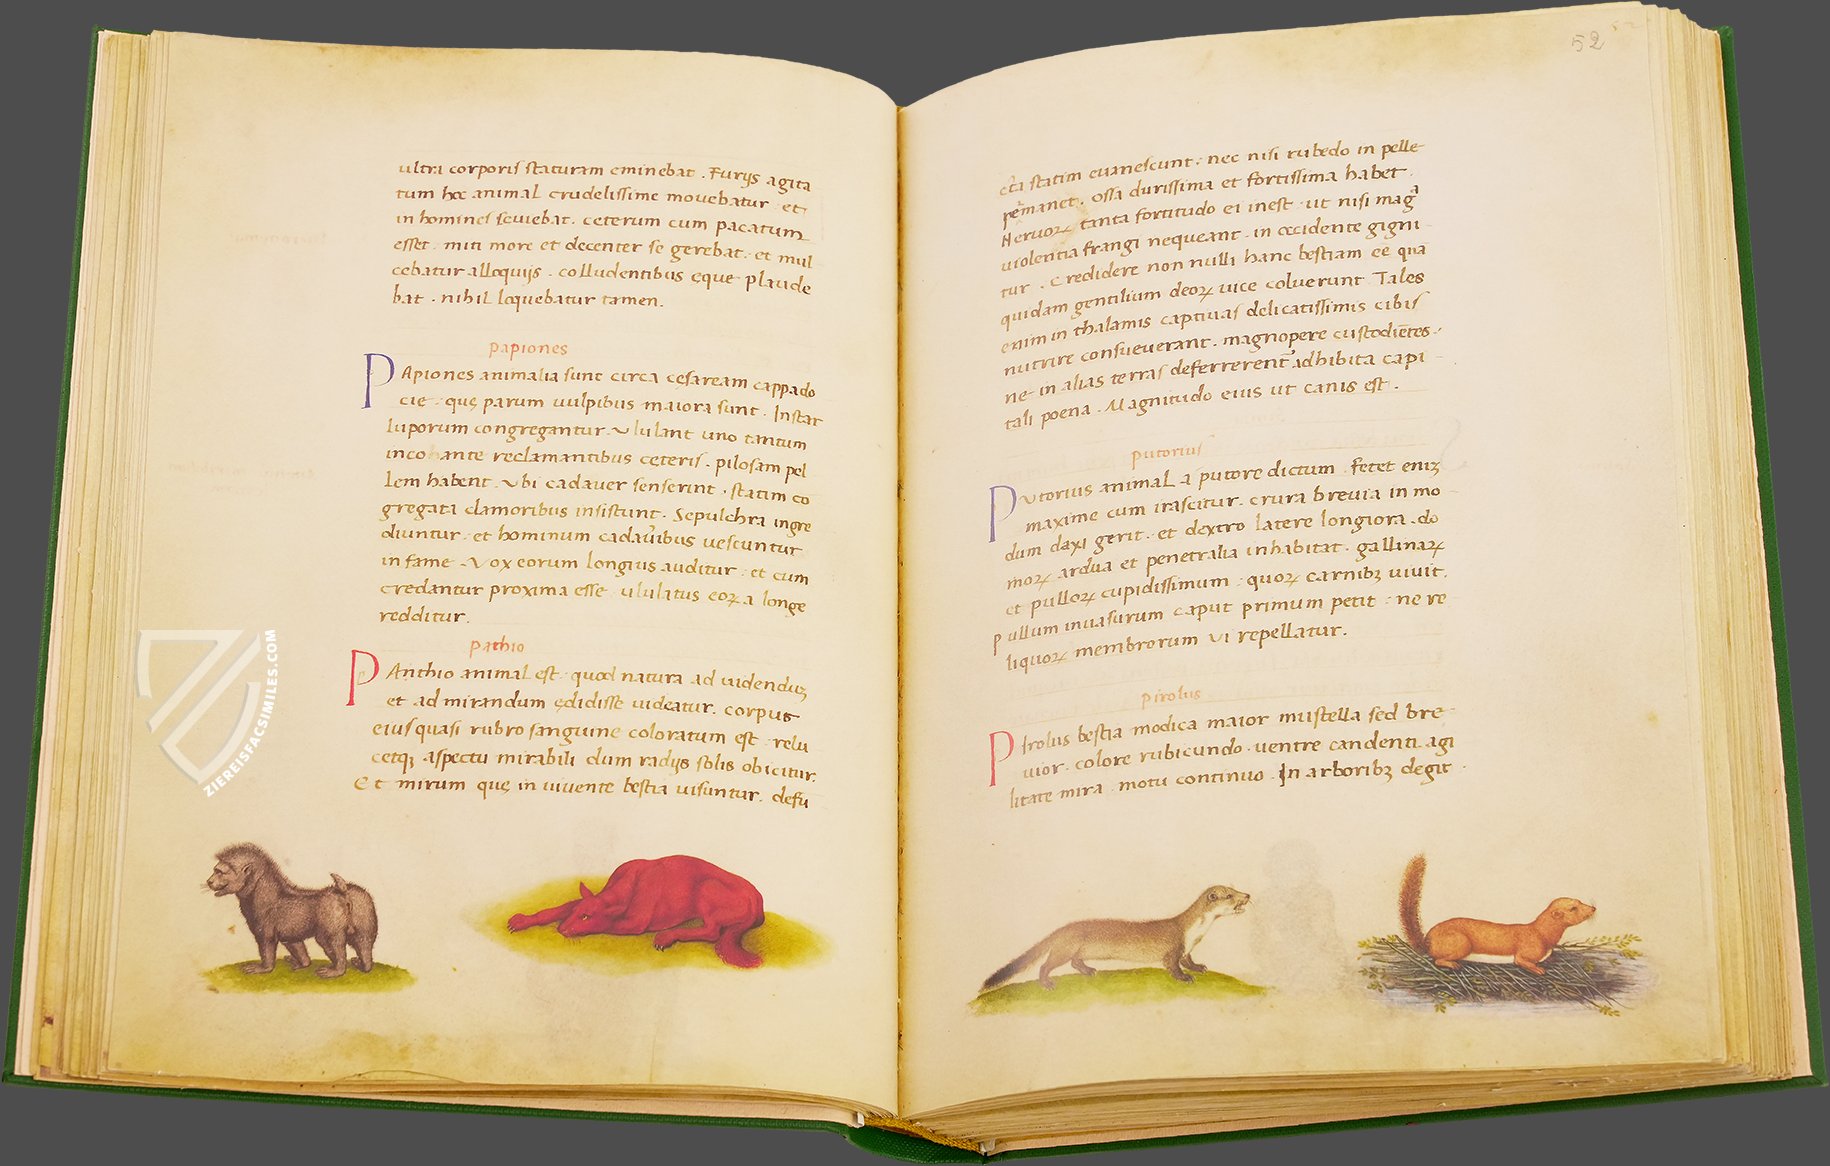 ultra corporis staturam eminebat . Furijs agita
tum hoc animal crudelissime movebatur et
in homines seuiebat . ceterum cum pacatum
esset . miti more et decenter se gerebat . et mul
cebatur alloquijs . colludentibus eque plaude
bat . nihil loquebatur tamen .
Papiones
PApiones animalia sunt circa cesaream cappado
cie . quę parum uulpibus maiora sunt . Instar
luporum congregantur . Ululant uno tantum
inco ante reclamantibus ceteris . pilosam pel
lem habent . Ubi cadauer senserint . statim co
gregata clamoribus insistunt . Sepulchra ingre
diuntur . et hominum cadaueribus uescuntur
in fame . Vox eorum longius auditur . et cum
credantur proxima esse ululatus eoꝝ a longe
redditur .
Pathio
PAnthio animal est . quod natura ad uidenduꝫ
et ad mirandum ędidisse uideatur . corpus
eius quasi rubro sanguine coloratum est . relu
cetqꝫ aspectu mirabili dum radijs solis obicitur .
Et mirum quę in uiuente bestia uisuntur . defu
52
cta statim euanescunt . nec nisi rubedo in pelle
remanet . Ossa durissima et fortissima habet .
Neruoꝝ tanta fortitudo ei inest ut nisi magᵃ
uiolentia frangi nequeant . in occidente gigni
tur . Credidere non nulli hanc bestiam eē quā
quidam gentilium deoꝝ uice coluerunt Tales
enim in thalamis captiuas delicatissimis cibis
nutrire consueuerant . magnopere custodiētes .
ne in alias terras deferrerent adhibita capi
tali poena . Magnitudo eius ut canis est .
Putorius
PUtorius animal a putore dictum . Fetet enīꝫ
maxime cum irascitur . crura breuia in mo
dum daxi gerit . et dextro latere longiora . do
moꝝ ardua et penetralia inhabitat . gallinaꝝ
et pulloꝝ cupidissimum . quoꝝ carnibꝫ uiuit .
Pullum inuasurum caput primum petit : ne re
liquoꝝ membrorum vi repellatur .
Pirolus
PIrolus bestia modica maior mustella sed bre
uior . colore rubicundo . uentre candenti . agi
litate mira . motu continuo . In arboribꝫ degit .
ZIEREISFACSIMILES.COM